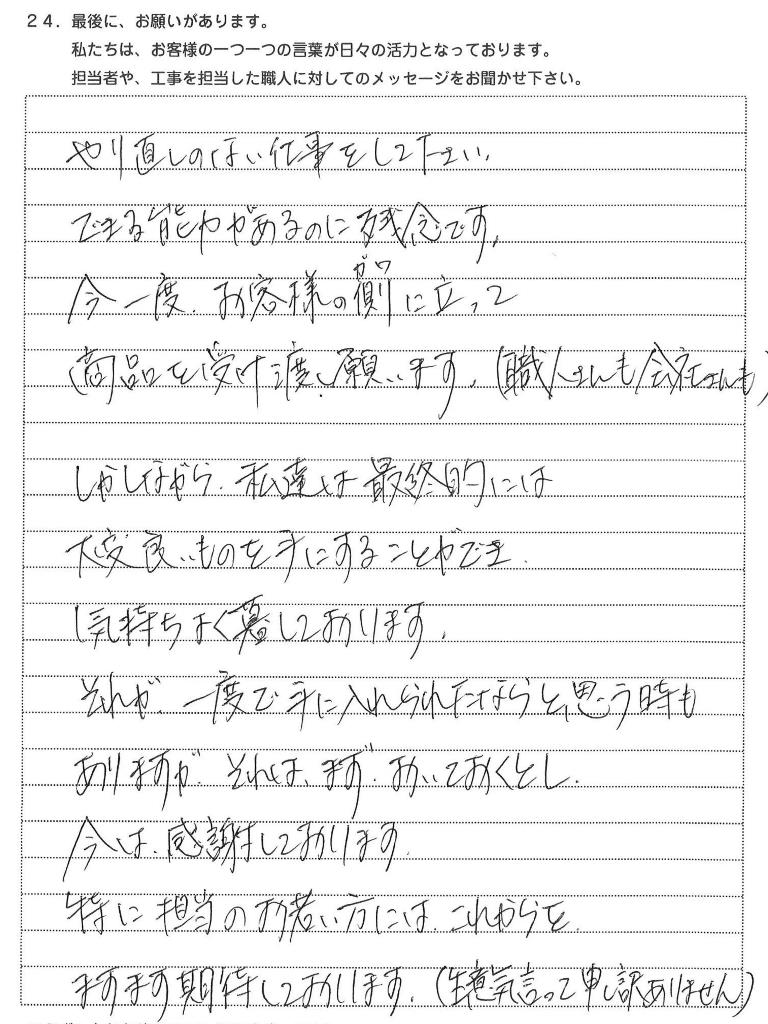 24．最後に、お願いがあります。
私たちは、お客様の一つ一つの言葉が日々の活力となっております。
担当者や、工事を担当した職人に対してのメッセージをお聞かせ下さい。
やり直しのない仕事をして下さい。
できる能力があるのに残念です。
ガワ
今一度、お客様の側に立って
商品を受け渡し願います。(職人さんも会社さんも)
しかしながら、私達は最終的には
大変良いものを手にすることができ、
気持ちよく暮しております。
それが、一度で手に入れられたならと思う時も
ありますが、それは、まず、おいておくとし、
今は、感謝しております。
特に担当のお若い方には、これからを、
ますます期待しております。(生意気言って申し訳ありません)